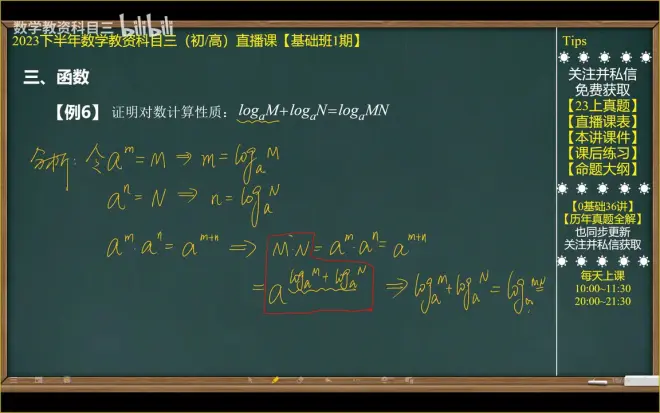 数学教资科目三 bilibili
2023下半年数学教资科目三（初/高）直播课【基础班1期】
三、函数
【例6】证明对数计算性质：logₐM+logₐN=logₐMN
分析：令aᵐ=M ⇒ m=logₐM
aⁿ=N ⇒ n=logₐN
aᵐ·aⁿ=aᵐ⁺ⁿ ⇒ M·N=aᵐ·aⁿ=aᵐ⁺ⁿ
=a^(logₐM+logₐN) ⇒ logₐM+logₐN=logₐMN
Tips
关注并私信
免费获取
【23上真题】
【直播课表】
【本讲课件】
【课后练习】
【命题大纲】
【0基础36讲】
【历年真题全解】
也同步更新
关注并私信获取
每天上课
10:00~11:30
20:00~21:30